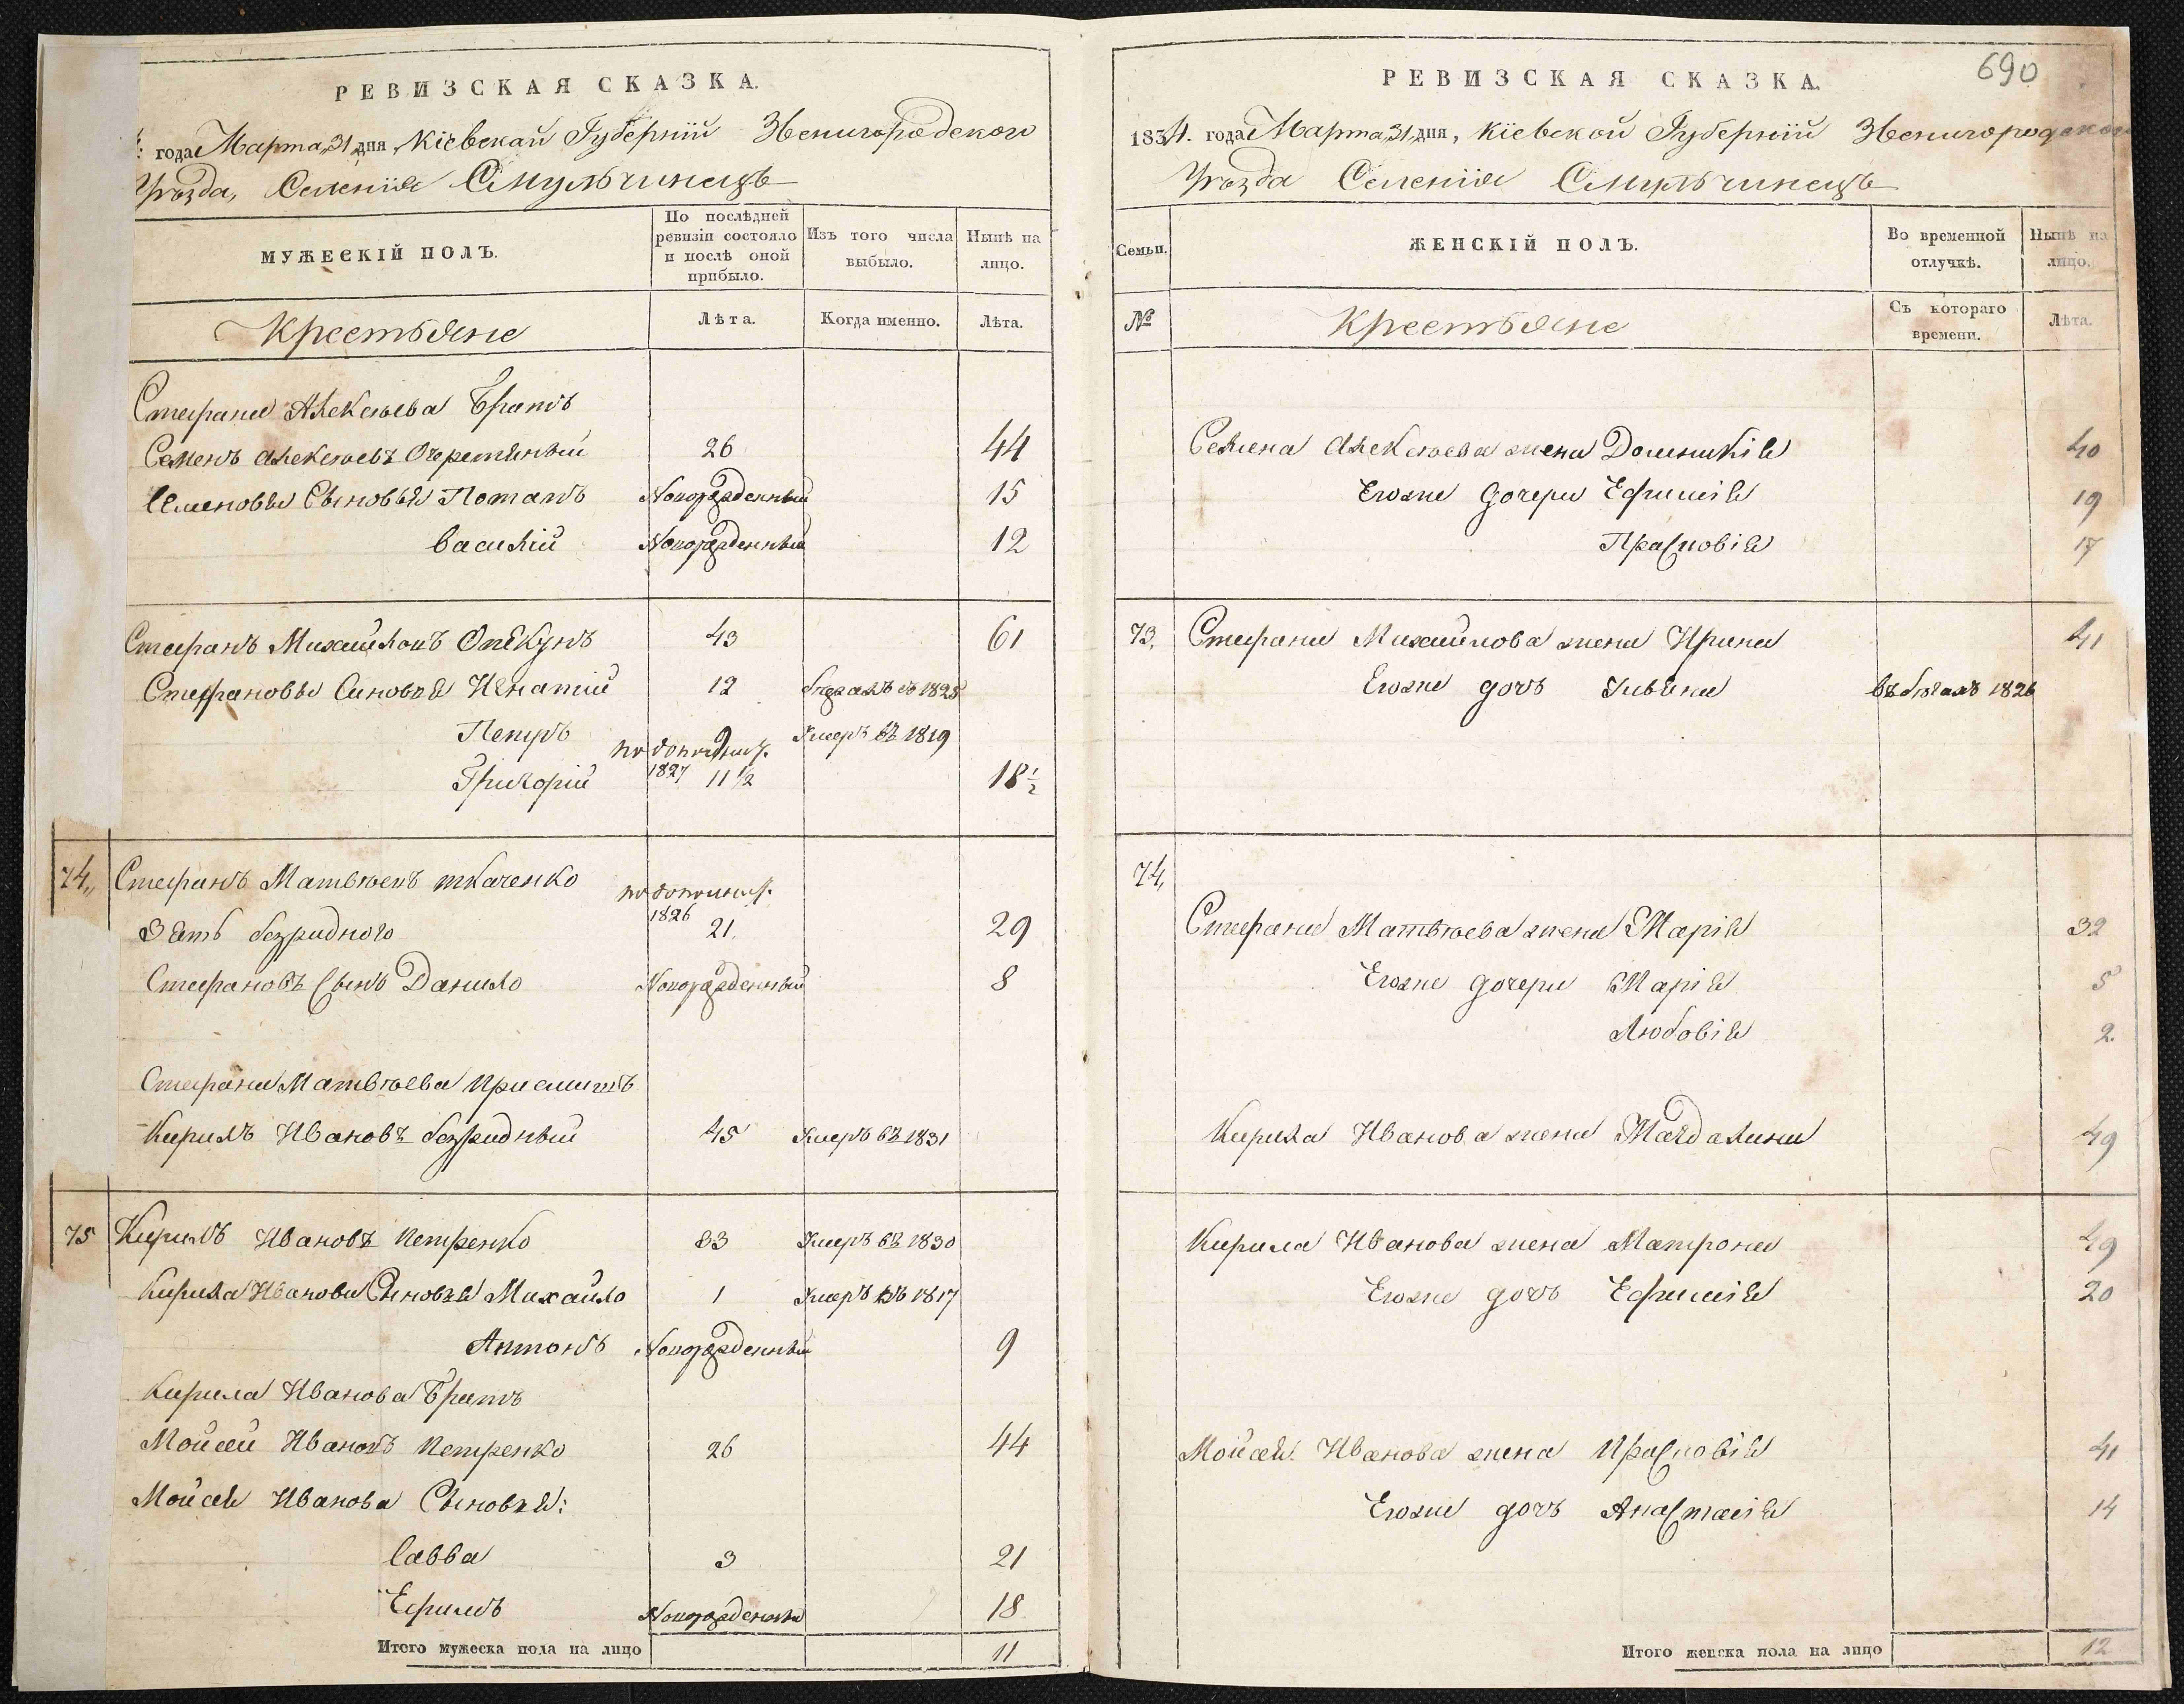 РЕВИЗСКАЯ СКАЗКА.
года Марта 31 дня, Кіевской Губерніи Звенигородского
Уѣзда, Селенія Смульчинецъ
МУЖЕСКІЙ ПОЛЪ.
По послѣдней ревизіи состояло и послѣ оной прибыло.
Изъ того числа выбыло.
Нынѣ на лицо.
Крестьяне
Лѣта.
Когда именно.
Лѣта.
Стефана Алексѣева Братъ
Семенъ Алексѣевъ Очеретяный 26 44
Семеновы Сыновья Потапъ Новорожденный 15
Василій Новорожденный 12
Стефанъ Михайловъ Опекунъ 43 61
Стефановы Синовья Игнатій 12 1828
Петръ 9 Умеръ въ 1819
по дополнит.
Григорій 1827 11 1/2 18 1/2
74, Стефанъ Матвѣевъ ткаченко
по дополнит.
Зять безридного 1826 21. 29
Стефановъ Сынъ Данило Новорожденный 8
Стефана Матвѣева Приемитъ
Кирилъ Ивановъ безридный 45 Умеръ въ 1831
75 Кирилъ Ивановъ Петренко 33 Умеръ въ 1830
Кирила Иванова Сыновья Михайло 1 Умеръ въ 1817
Антонъ Новорожденный 9
Кирила Иванова Братъ
Мойсей Ивановъ Петренко 26 44
Мойсея Иванова Сыновья:
Савва 3 21
Ефимъ Новорожденный 18
Итого мужеска пола на лицо 11
690
РЕВИЗСКАЯ СКАЗКА.
1834. года Марта 31 дня, Кіевской Губерніи Звенигородского
Уѣзда Селенія Смульчинецъ
Семьи.
ЖЕНСКІЙ ПОЛЪ.
Во временной отлучкѣ.
Нынѣ на лицо.
№
Крестьяне
Съ котораго времени.
Лѣта.
Семена Алексѣева жена Домникія 40
Егоже дочери Ефимія 19
Прасковія 17
73, Стефана Михайлова жена Ирина 41
Егоже дочь въ бѣгахъ 1826
74,
Стефана Матвѣева жена Марія 32
Егоже дочери Марія 5
Любовія 2.
Кирила Иванова жена Магдалина 49
Кирила Иванова жена Матрона 49
Егоже дочь Ефимія 20
Мойсея Иванова жена Прасковія 41
Егоже дочь Анастасія 14
Итого женска пола на лицо 12